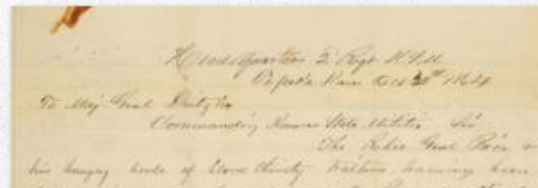 Head Quarters 2 Regt K.S.M
Topeka Kans Oct 20th 1864
To Maj Genl Deitzler
Commanding Kansas State Militia Sir
The Rebel Genl Price
his hungry horde of blood thirsty having been